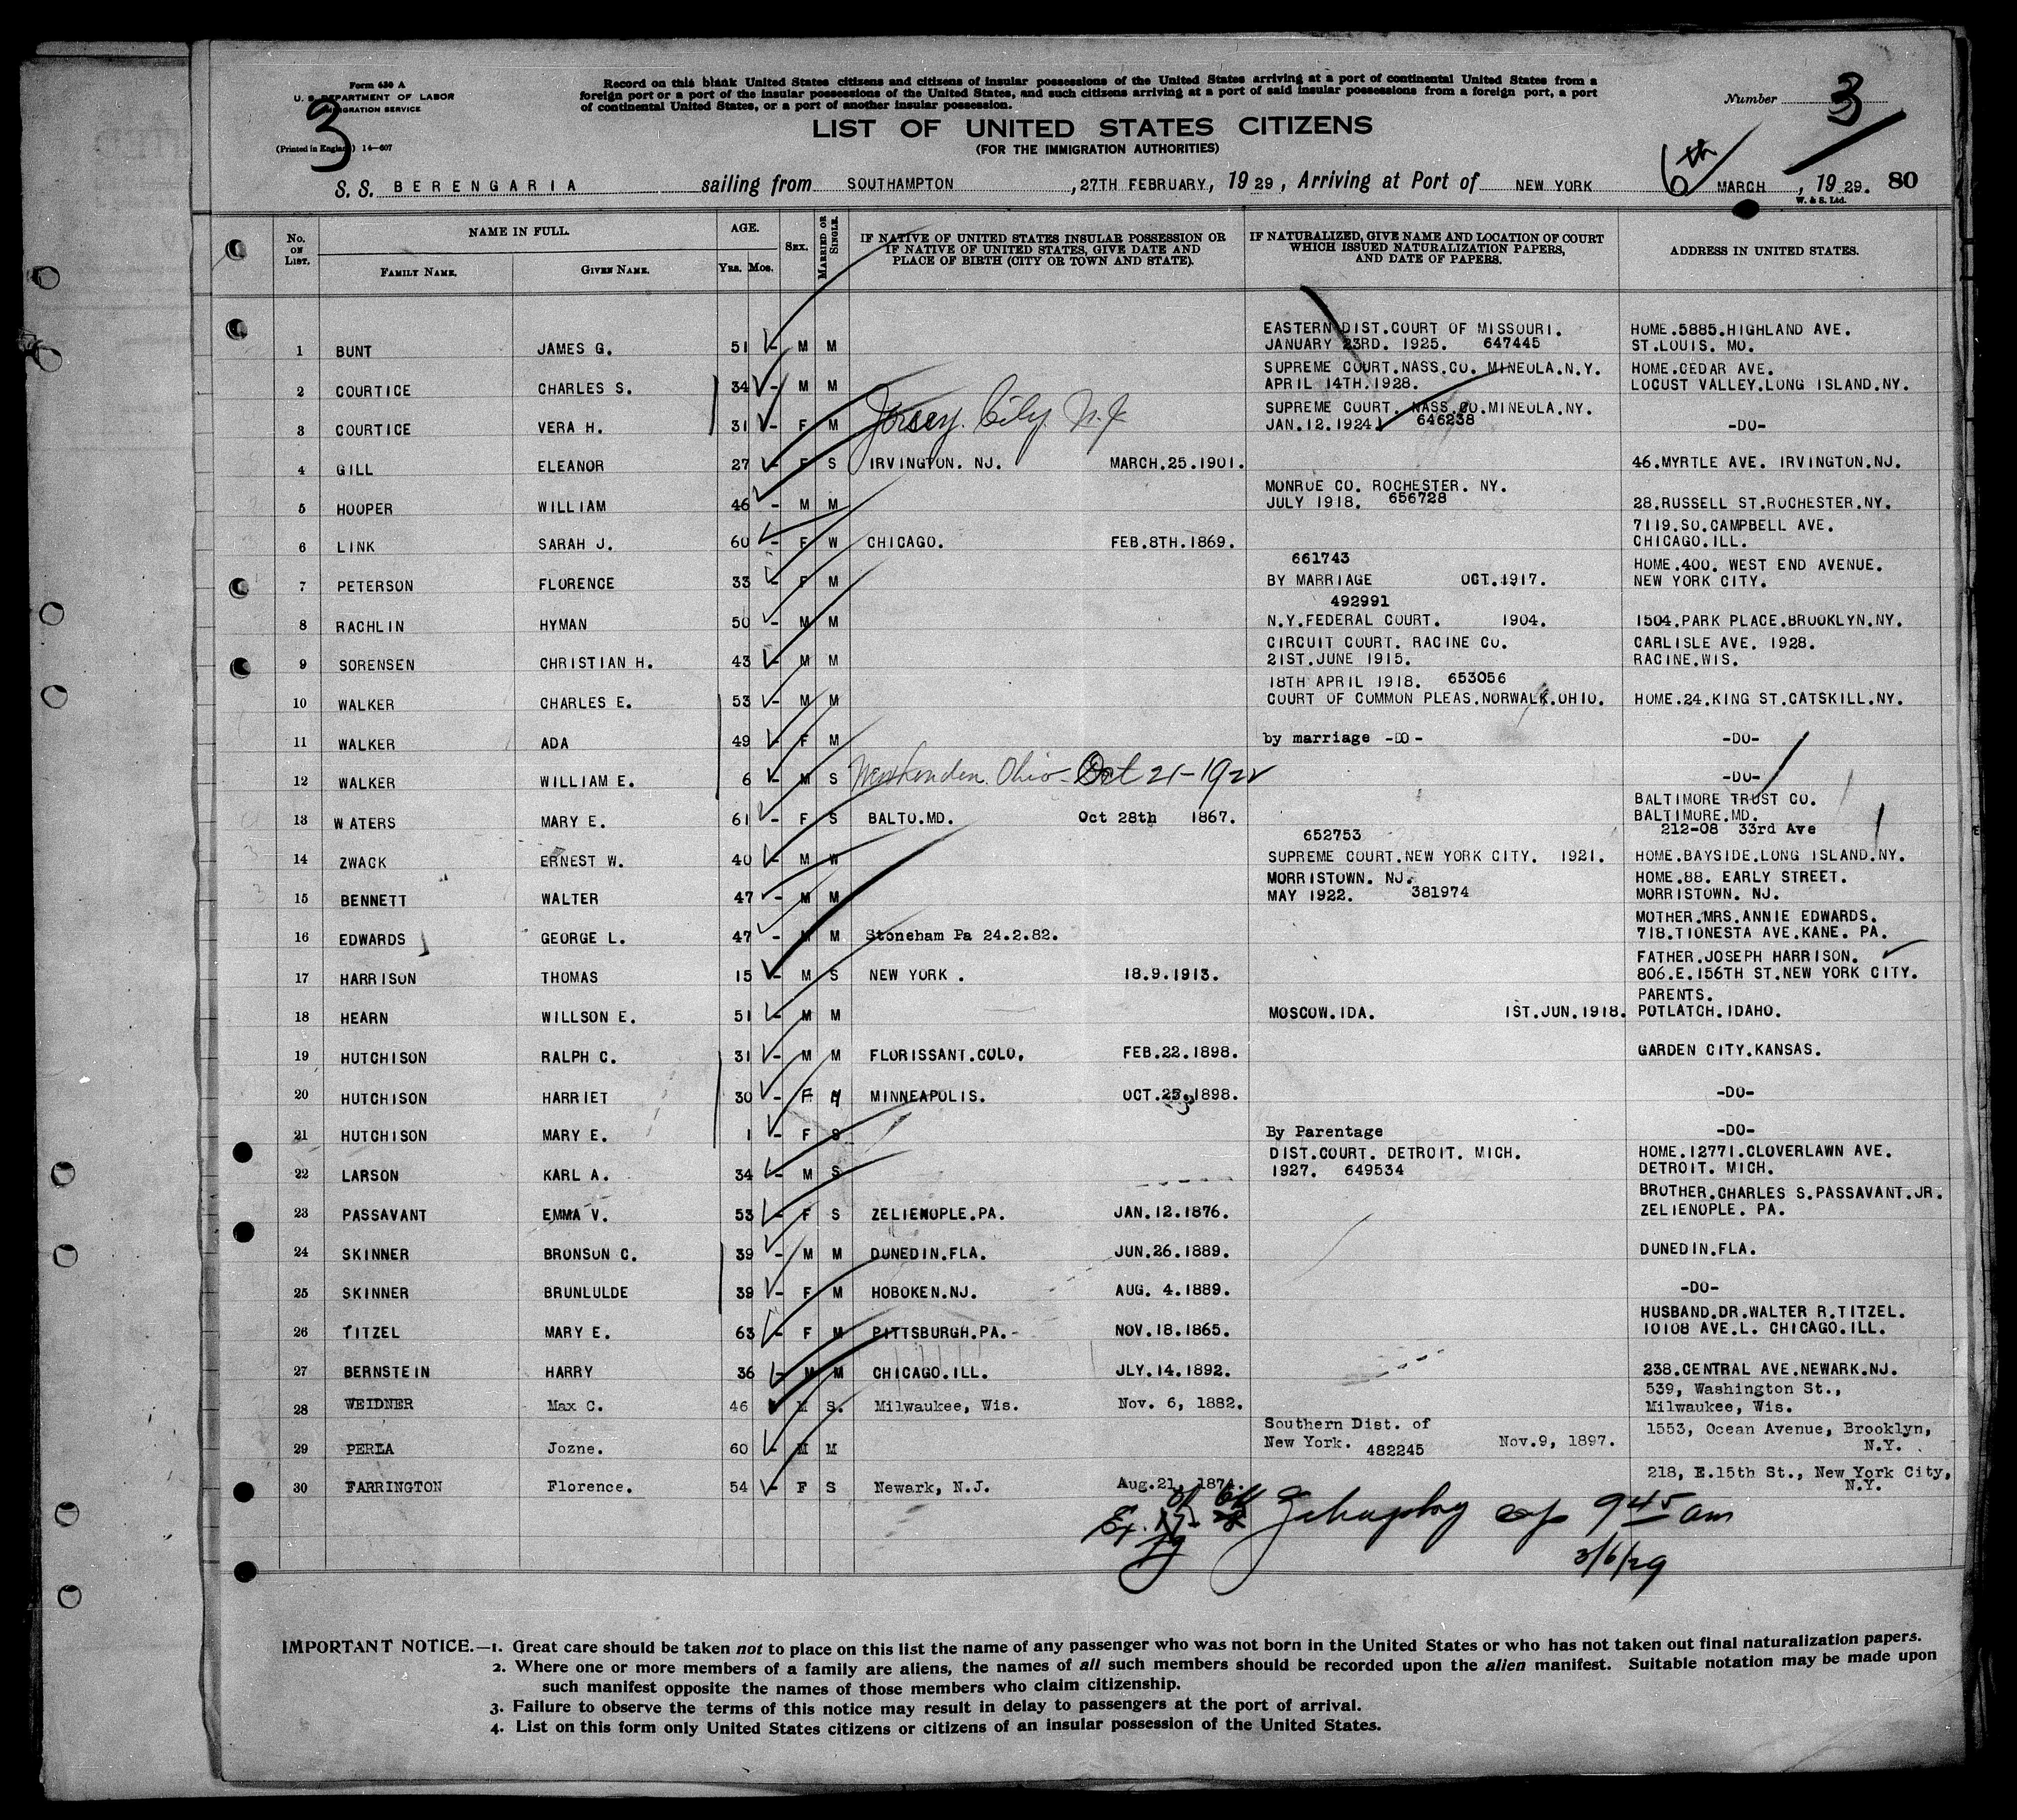 Form 630 A
U. S. DEPARTMENT OF LABOR
IMMIGRATION SERVICE
3
(Printed in England) 14—607
Record on this blank United States citizens and citizens of insular possessions of the United States arriving at a port of continental United States from a
foreign port or a port of the insular possessions of the United States, and such citizens arriving at a port of said insular possessions from a foreign port, a port
of continental United States, or a port of another insular possession.
Number 3
LIST OF UNITED STATES CITIZENS
(FOR THE IMMIGRATION AUTHORITIES)
S. S. BERENGARIA sailing from SOUTHAMPTON , 27TH FEBRUARY, 1929, Arriving at Port of NEW YORK 6th MARCH , 1929. 80
W. & S. Ltd.
No. ON LIST. NAME IN FULL. FAMILY NAME. GIVEN NAME. AGE. Yrs. Mos. SEX. MARRIED OR SINGLE. IF NATIVE OF UNITED STATES INSULAR POSSESSION OR IF NATIVE OF UNITED STATES, GIVE DATE AND PLACE OF BIRTH (CITY OR TOWN AND STATE). IF NATURALIZED, GIVE NAME AND LOCATION OF COURT WHICH ISSUED NATURALIZATION PAPERS, AND DATE OF PAPERS. ADDRESS IN UNITED STATES.
EASTERN DIST.COURT OF MISSOURI. HOME.5885.HIGHLAND AVE.
1 BUNT JAMES G. 51 - M M JANUARY 23RD. 1925. 647445 ST.LOUIS. MO.
SUPREME COURT.NASS.CO. MINEOLA.N.Y. HOME.CEDAR AVE.
2 COURTICE CHARLES S. 34 - M M APRIL 14TH.1928. LOCUST VALLEY.LONG ISLAND.NY.
SUPREME COURT. NASS.CO.MINEOLA.NY.
3 COURTICE VERA H. 31 - F M Jersey City N.J. JAN.12.1924. 646238 -DO-
4 GILL ELEANOR 27 - F S IRVINGTON. NJ. MARCH.25.1901. 46.MYRTLE AVE. IRVINGTON.NJ.
MONROE CO. ROCHESTER. NY.
5 HOOPER WILLIAM 46 - M M JULY 1918. 656728 28.RUSSELL ST.ROCHESTER.NY.
7119.SO.CAMPBELL AVE.
6 LINK SARAH J. 60 - F W CHICAGO. FEB.8TH.1869. CHICAGO.ILL.
661743 HOME.400. WEST END AVENUE.
7 PETERSON FLORENCE 33 - F M BY MARRIAGE OCT.1917. NEW YORK CITY.
492991
8 RACHLIN HYMAN 50 - M M N.Y.FEDERAL COURT. 1904. 1504.PARK PLACE.BROOKLYN.NY.
CIRCUIT COURT. RACINE CO. CARLISLE AVE. 1928.
9 SORENSEN CHRISTIAN H. 43 - M M 21ST.JUNE 1915. RACINE.WIS.
18TH APRIL 1918. 653056
10 WALKER CHARLES E. 53 - M M COURT OF COMMON PLEAS.NORWALK.OHIO. HOME.24.KING ST.CATSKILL.NY.
11 WALKER ADA 49 - F M by marriage -DO- -DO-
12 WALKER WILLIAM E. 6 - M S Ohio Oct 21-1922 -DO-
BALTIMORE TRUST CO.
13 WATERS MARY E. 61 - F S BALTO.MD. Oct 28th 1867. BALTIMORE.MD.
652753 212-08 33rd Ave
14 ZWACK ERNEST W. 40 - M W SUPREME COURT.NEW YORK CITY. 1921. HOME.BAYSIDE.LONG ISLAND.NY.
MORRISTOWN. NJ. HOME.88. EARLY STREET.
15 BENNETT WALTER 47 - M M MAY 1922. 381974 MORRISTOWN. NJ.
MOTHER.MRS.ANNIE EDWARDS.
16 EDWARDS GEORGE L. 47 - M M Stoneham Pa 24.2.82. 718.TIONESTA AVE.KANE. PA.
FATHER.JOSEPH HARRISON.
17 HARRISON THOMAS 15 - M S NEW YORK . 18.9.1913. 806.E.156TH ST.NEW YORK CITY.
PARENTS.
18 HEARN WILLSON E. 51 - M M MOSCOW.IDA. 1ST.JUN.1918. POTLATCH.IDAHO.
19 HUTCHISON RALPH C. 31 - M M FLORISSANT.COLO. FEB.22.1898. GARDEN CITY.KANSAS.
20 HUTCHISON HARRIET 30 - F M MINNEAPOLIS. OCT.23.1898. -DO-
21 HUTCHISON MARY E. 1 - F S By Parentage -DO-
DIST.COURT. DETROIT. MICH. HOME.12771.CLOVERLAWN AVE.
22 LARSON KARL A. 34 - M S 1927. 649534 DETROIT. MICH.
BROTHER.CHARLES S.PASSAVANT.JR.
23 PASSAVANT EMMA V. 53 - F S ZELIENOPLE.PA. JAN.12.1876. ZELIENOPLE. PA.
24 SKINNER BRONSON C. 39 - M M DUNEDIN.FLA. JUN.26.1889. DUNEDIN.FLA.
25 SKINNER BRUNLULDE 39 - F M HOBOKEN.NJ. AUG. 4.1889. -DO-
HUSBAND.DR.WALTER R.TITZEL.
26 TITZEL MARY E. 63 - F M PITTSBURGH.PA.- NOV.18.1865. 10108 AVE.L. CHICAGO.ILL.
27 BERNSTEIN HARRY 36 - M M CHICAGO.ILL. JLY.14.1892. 238.CENTRAL AVE.NEWARK.NJ.
539, Washington St.,
28 WEIDNER Max C. 46 M S. Milwaukee, Wis. Nov. 6, 1882. Milwaukee, Wis.
Southern Dist. of 1553, Ocean Avenue, Brooklyn,
29 PERLA Jozne. 60 - M M New York. 482245 Nov.9, 1897. N.Y.
218, E.15th St., New York City,
30 FARRINGTON Florence. 54 - F S Newark, N.J. Aug.21, 1874. N.Y.
Ex. 945 am
3/6/29
IMPORTANT NOTICE.—1. Great care should be taken not to place on this list the name of any passenger who was not born in the United States or who has not taken out final naturalization papers.
2. Where one or more members of a family are aliens, the names of all such members should be recorded upon the alien manifest. Suitable notation may be made upon
such manifest opposite the names of those members who claim citizenship.
3. Failure to observe the terms of this notice may result in delay to passengers at the port of arrival.
4. List on this form only United States citizens or citizens of an insular possession of the United States.